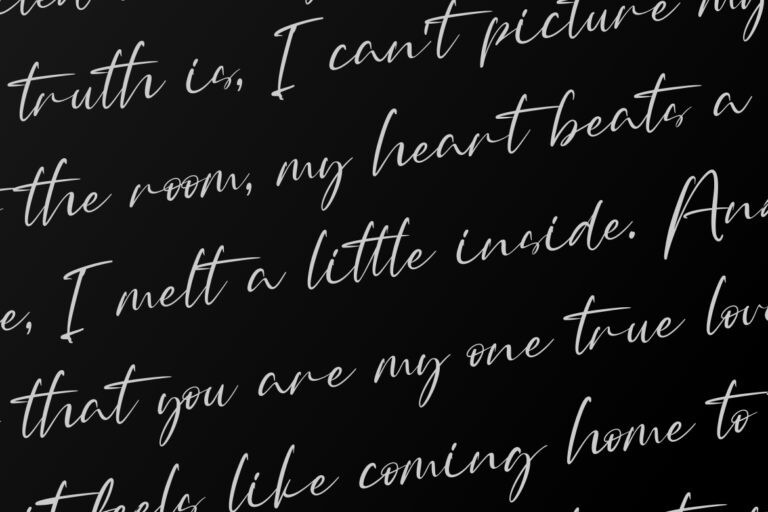 truth is, I can't picture my
the room, my heart beats a
e, I melt a little inside. And
that you are my one true love
feels like coming home to